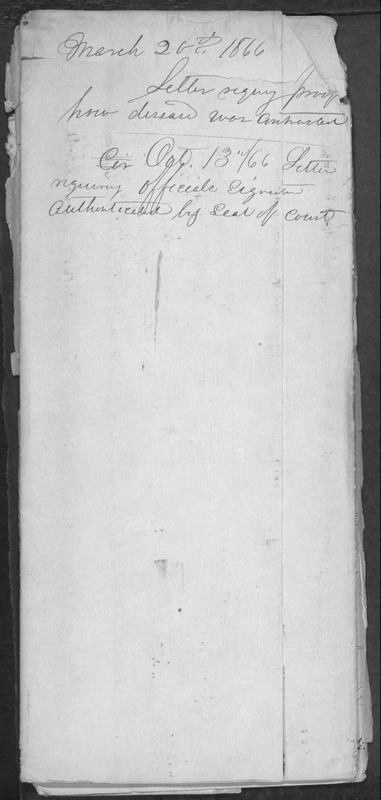 March 20th. 1866
Letter reqirg proof
how disease was contracted
Cir Oct. 13"/66 Letter
reqiring officials signature
authenticated by seal of court.